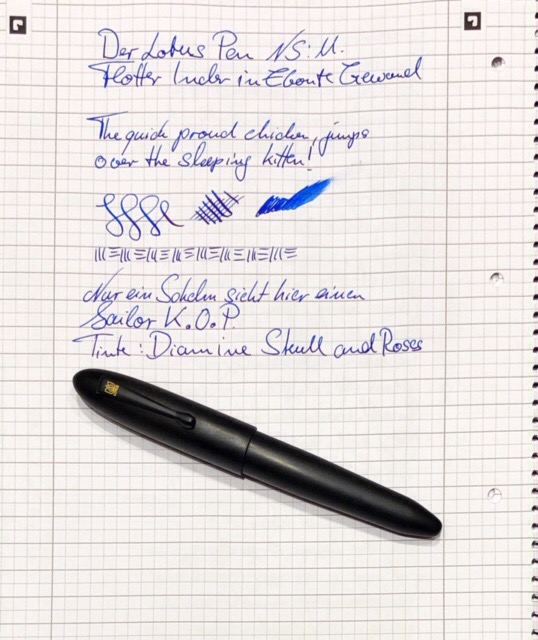 Der Lotus Pen NS: M.
Flotter Inder in Ebonite Gewand
The quick proud chicken, jumps
over the sleeping kitten!
Nur ein Schelm sieht hier einen
Sailor K.O.P.
Tinte: Diamine Skull and Roses